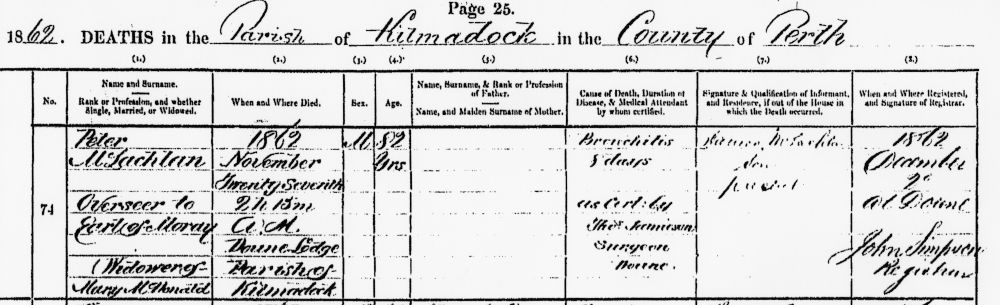 Page 25.
1862. DEATHS in the Parish of Kilmadock in the County of Perth
(1.) (2.) (3.) (4.) (5.) (6.) (7.) (8.)
No.
Name and Surname.
Rank or Profession, and whether
Single, Married, or Widowed.
When and Where Died.
Sex.
Age.
Name, Surname, & Rank or Profession
of Father.
Name, and Maiden Surname of Mother.
Cause of Death, Duration of
Disease, & Medical Attendant
by whom certified.
Signature & Qualification of Informant,
and Residence, if out of the House in
which the Death occurred.
When and Where Registered,
and Signature of Registrar.
74
Peter
McLachlan
Overseer to
Earl of Moray
(Widower of
Mary McDonald
1862
November
Twenty Seventh
2 h 15 m
A.M.
Doune Lodge
Parish of
Kilmadock
M
82
Yrs
Bronchitis
8 days
as Cert. by
Thos. Jamieson
Surgeon
Doune.
McLachlan
Son
present
1862
December
2d
at Doune
John Simpson
Registrar